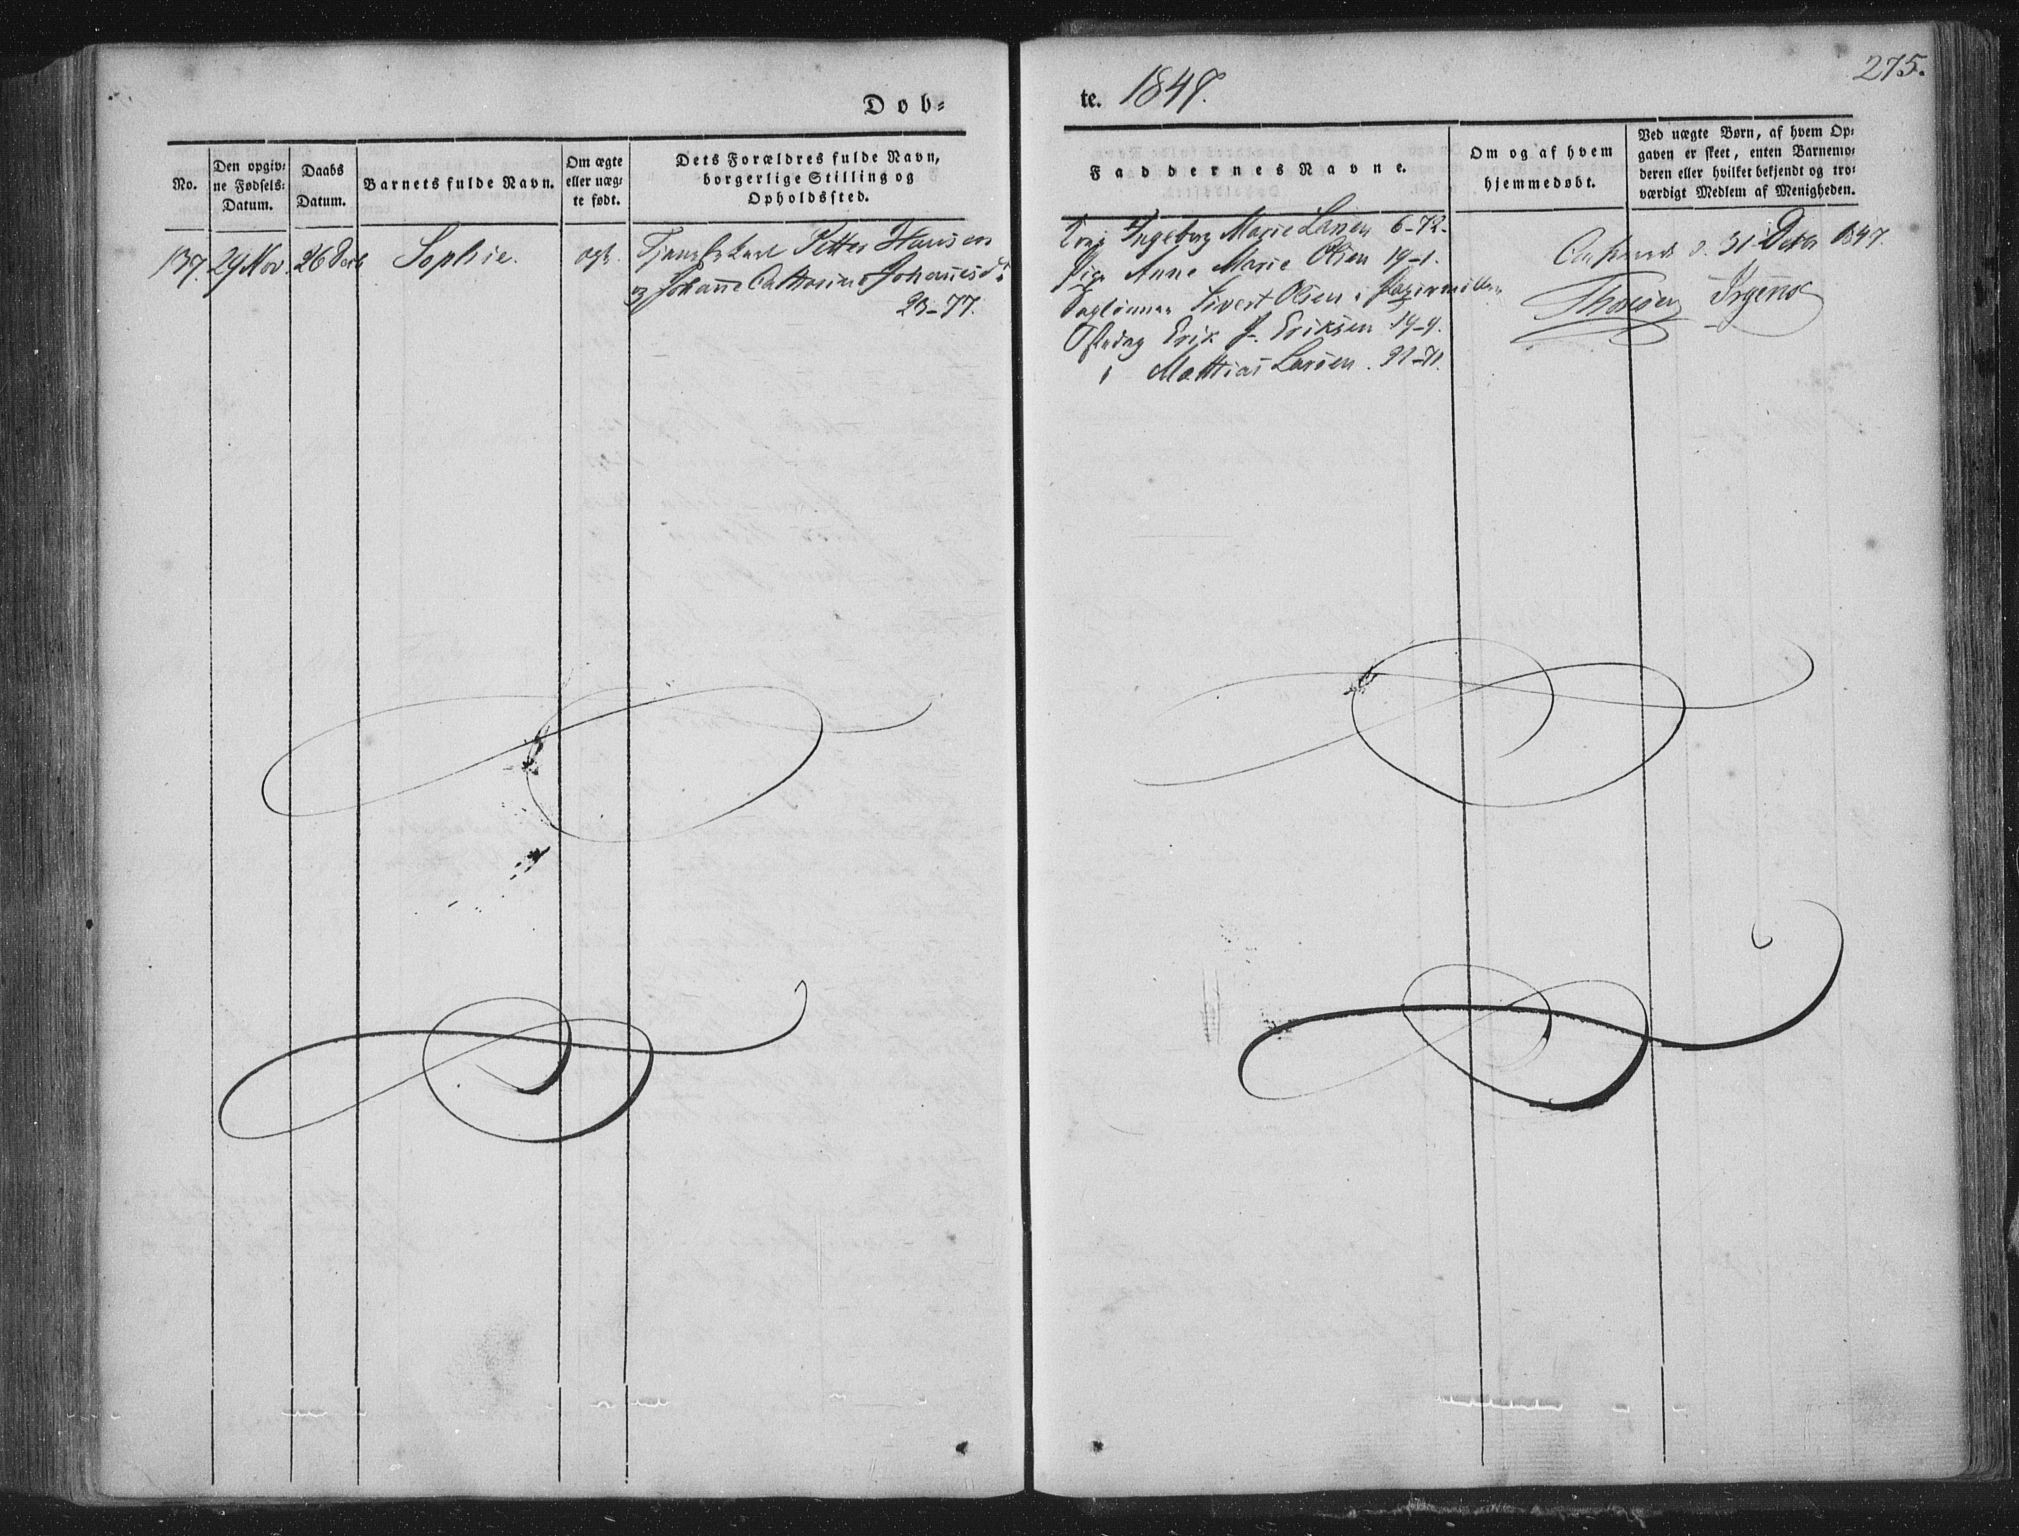 275.
Dob=
te. 1847.
No.
Den opgiv=
ne Fødsels=
Datum.
Daabs
Datum.
Barnets fulde Navn.
Om ægte
eller uæg=
te født.
Dets Forældres fulde Navn,
borgerlige Stilling og
Opholdssted.
Faddernes Navne.
Om og af hvem
hjemmedøbt.
Ved uægte Børn, af hvem Op=
gaven er skeet, enten Barnemo=
deren eller hvilket bekjendt og tro=
værdigt Medlem af Menigheden.
137.
29 Nov.
26 Decb
Sophie.
ægt.
Petter Hansen
og Johanne Catharina Johannesd
23-77.
Ingeborg Marie Larsen 6-72.
Pige Anne Marie Olsen 19-1.
Daglønner Sivert Olsen i Papirmøllen
Erik J. Eriksen 19-9.
Matthias Larsen. 21-71.
d. 31 Decbr 1847.
Irgens